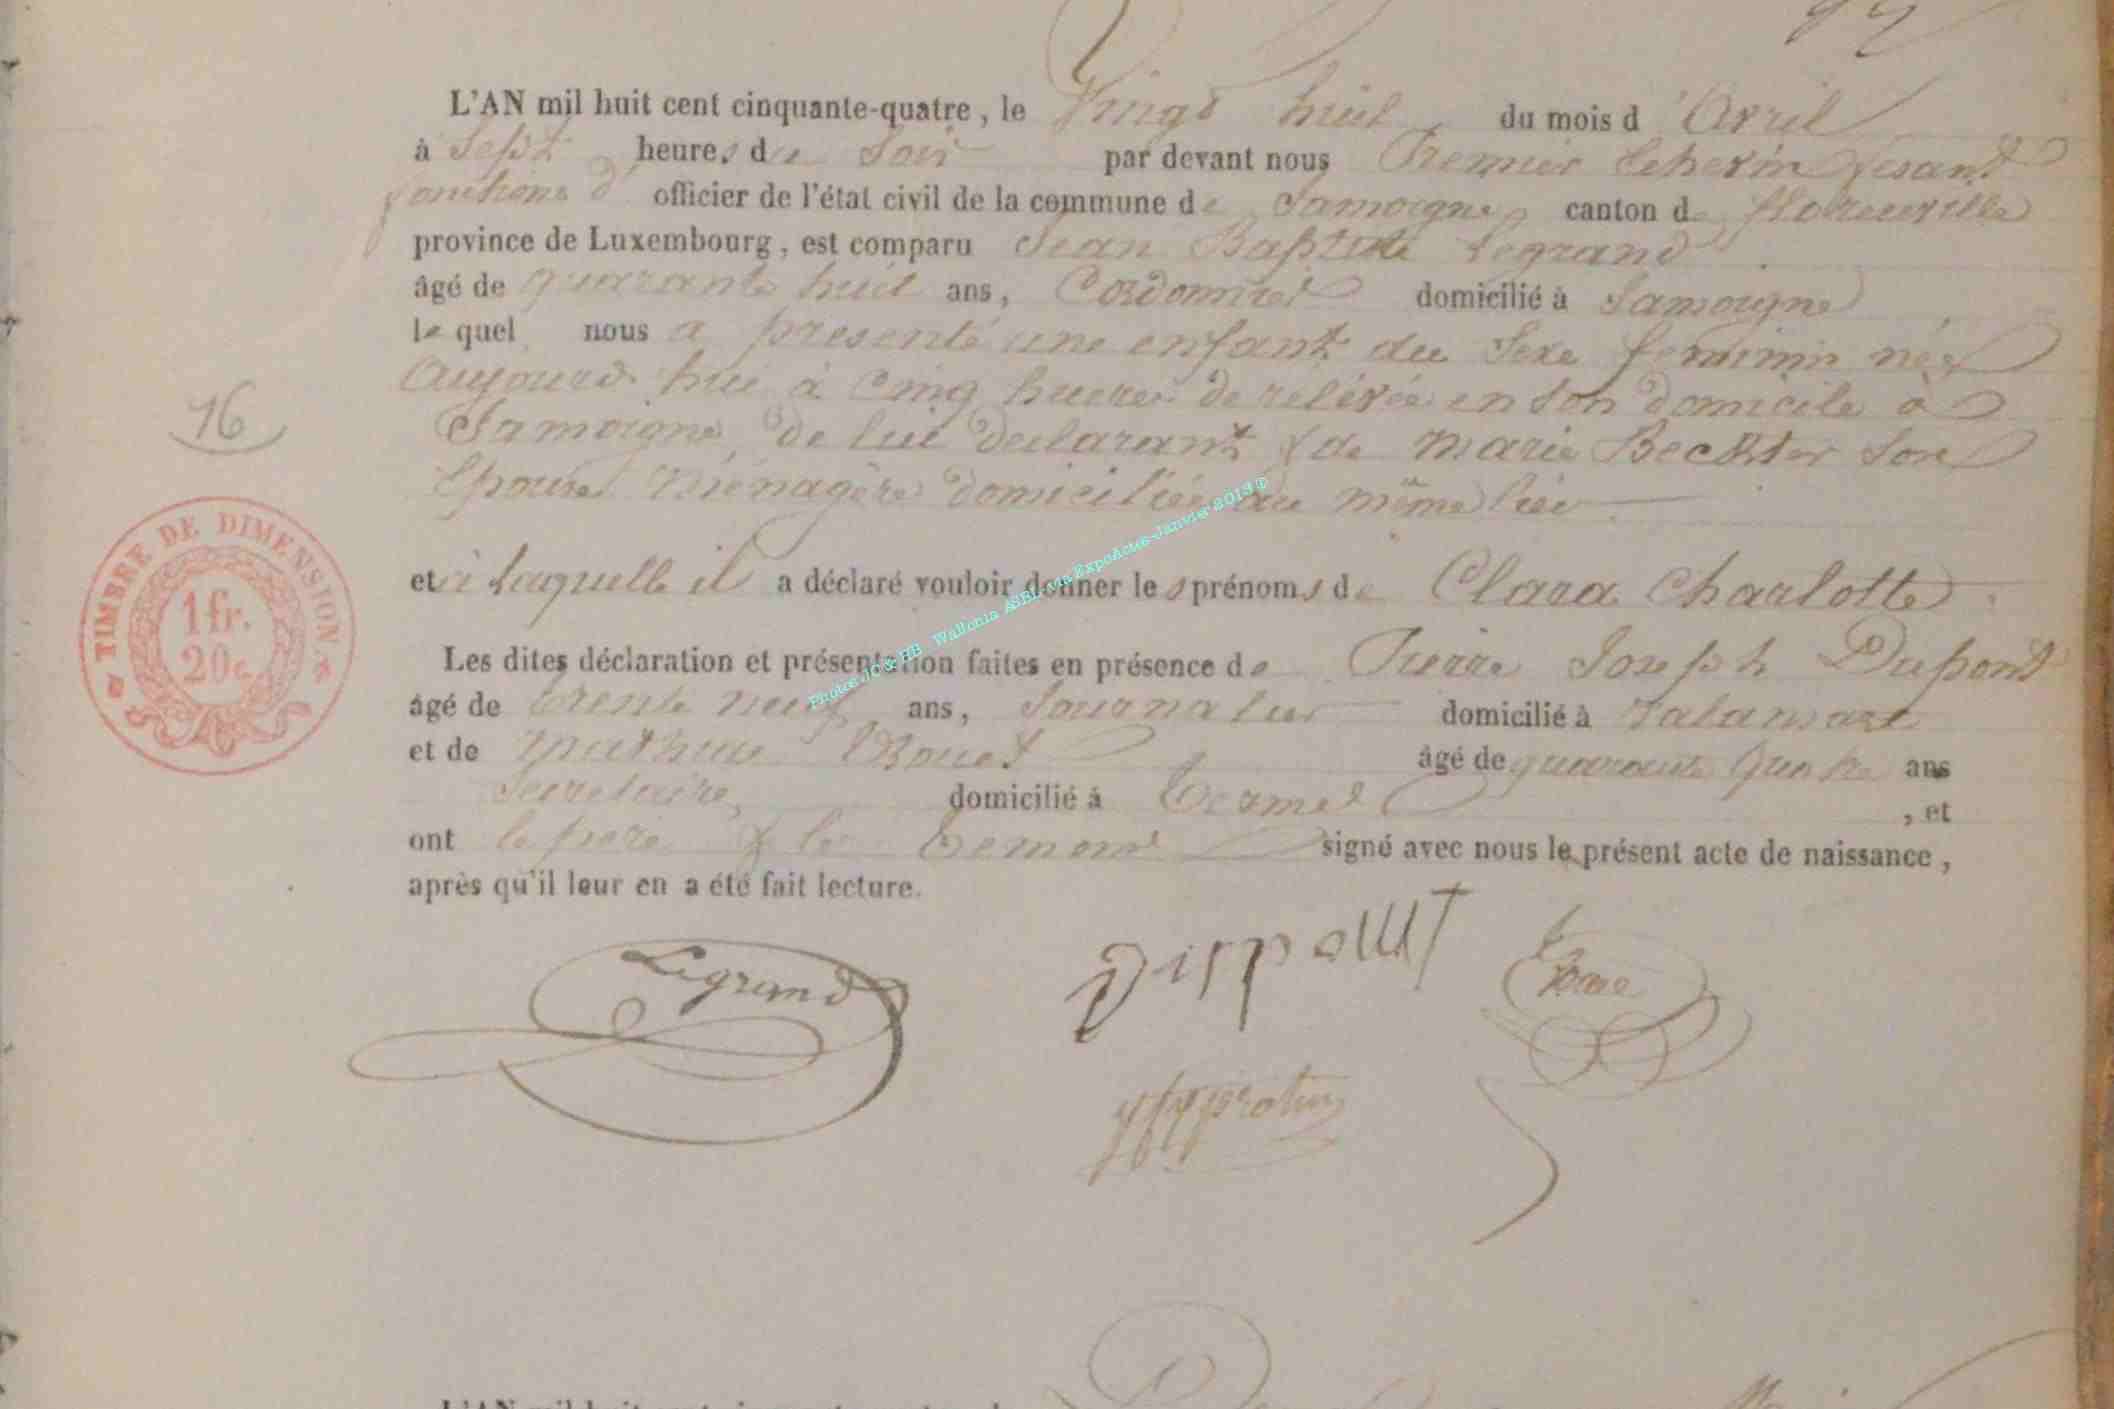 L'AN mil huit cent cinquante-quatre, le Vingt huit du mois d'Avril
à Sept heures du Soir par devant nous Premier Echevin fesant
fonctions d' officier de l'état civil de la commune de Jamoigne, canton de florenville
province de Luxembourg, est comparu Jean Baptiste Legrand
âgé de quarante huit ans, Cordonnier domicilié à Jamoigne
le quel nous a presenté une enfant du Sexe feminin née
Aujourd'hui à Cinq heures de relévée en son domicile à
Jamoigne, de lui declarant & de Marie Beckter Son
Epouse Ménagère domiciliée au même lieu
16
TIMBRE DE DIMENSION
1 fr.
20 c.
et à laquelle il a déclaré vouloir donner les prénoms de Clara Charlotte.
Les dites déclaration et présentation faites en présence de Pierre Joseph Dupont
âgé de trente neuf ans, Journalier domicilié à Valansart
et de Mathieu âgé de quarante quatre ans
Secretaire, domicilié à Termes, et
ont le père & les temoins signé avec nous le présent acte de naissance,
après qu'il leur en a été fait lecture.
Photos JC & RB Wallonia ASBL via ExpoActes-Janvier 2013 ©
Legrand
Duppont
L'AN mil huit cent cinquante-quatre, le